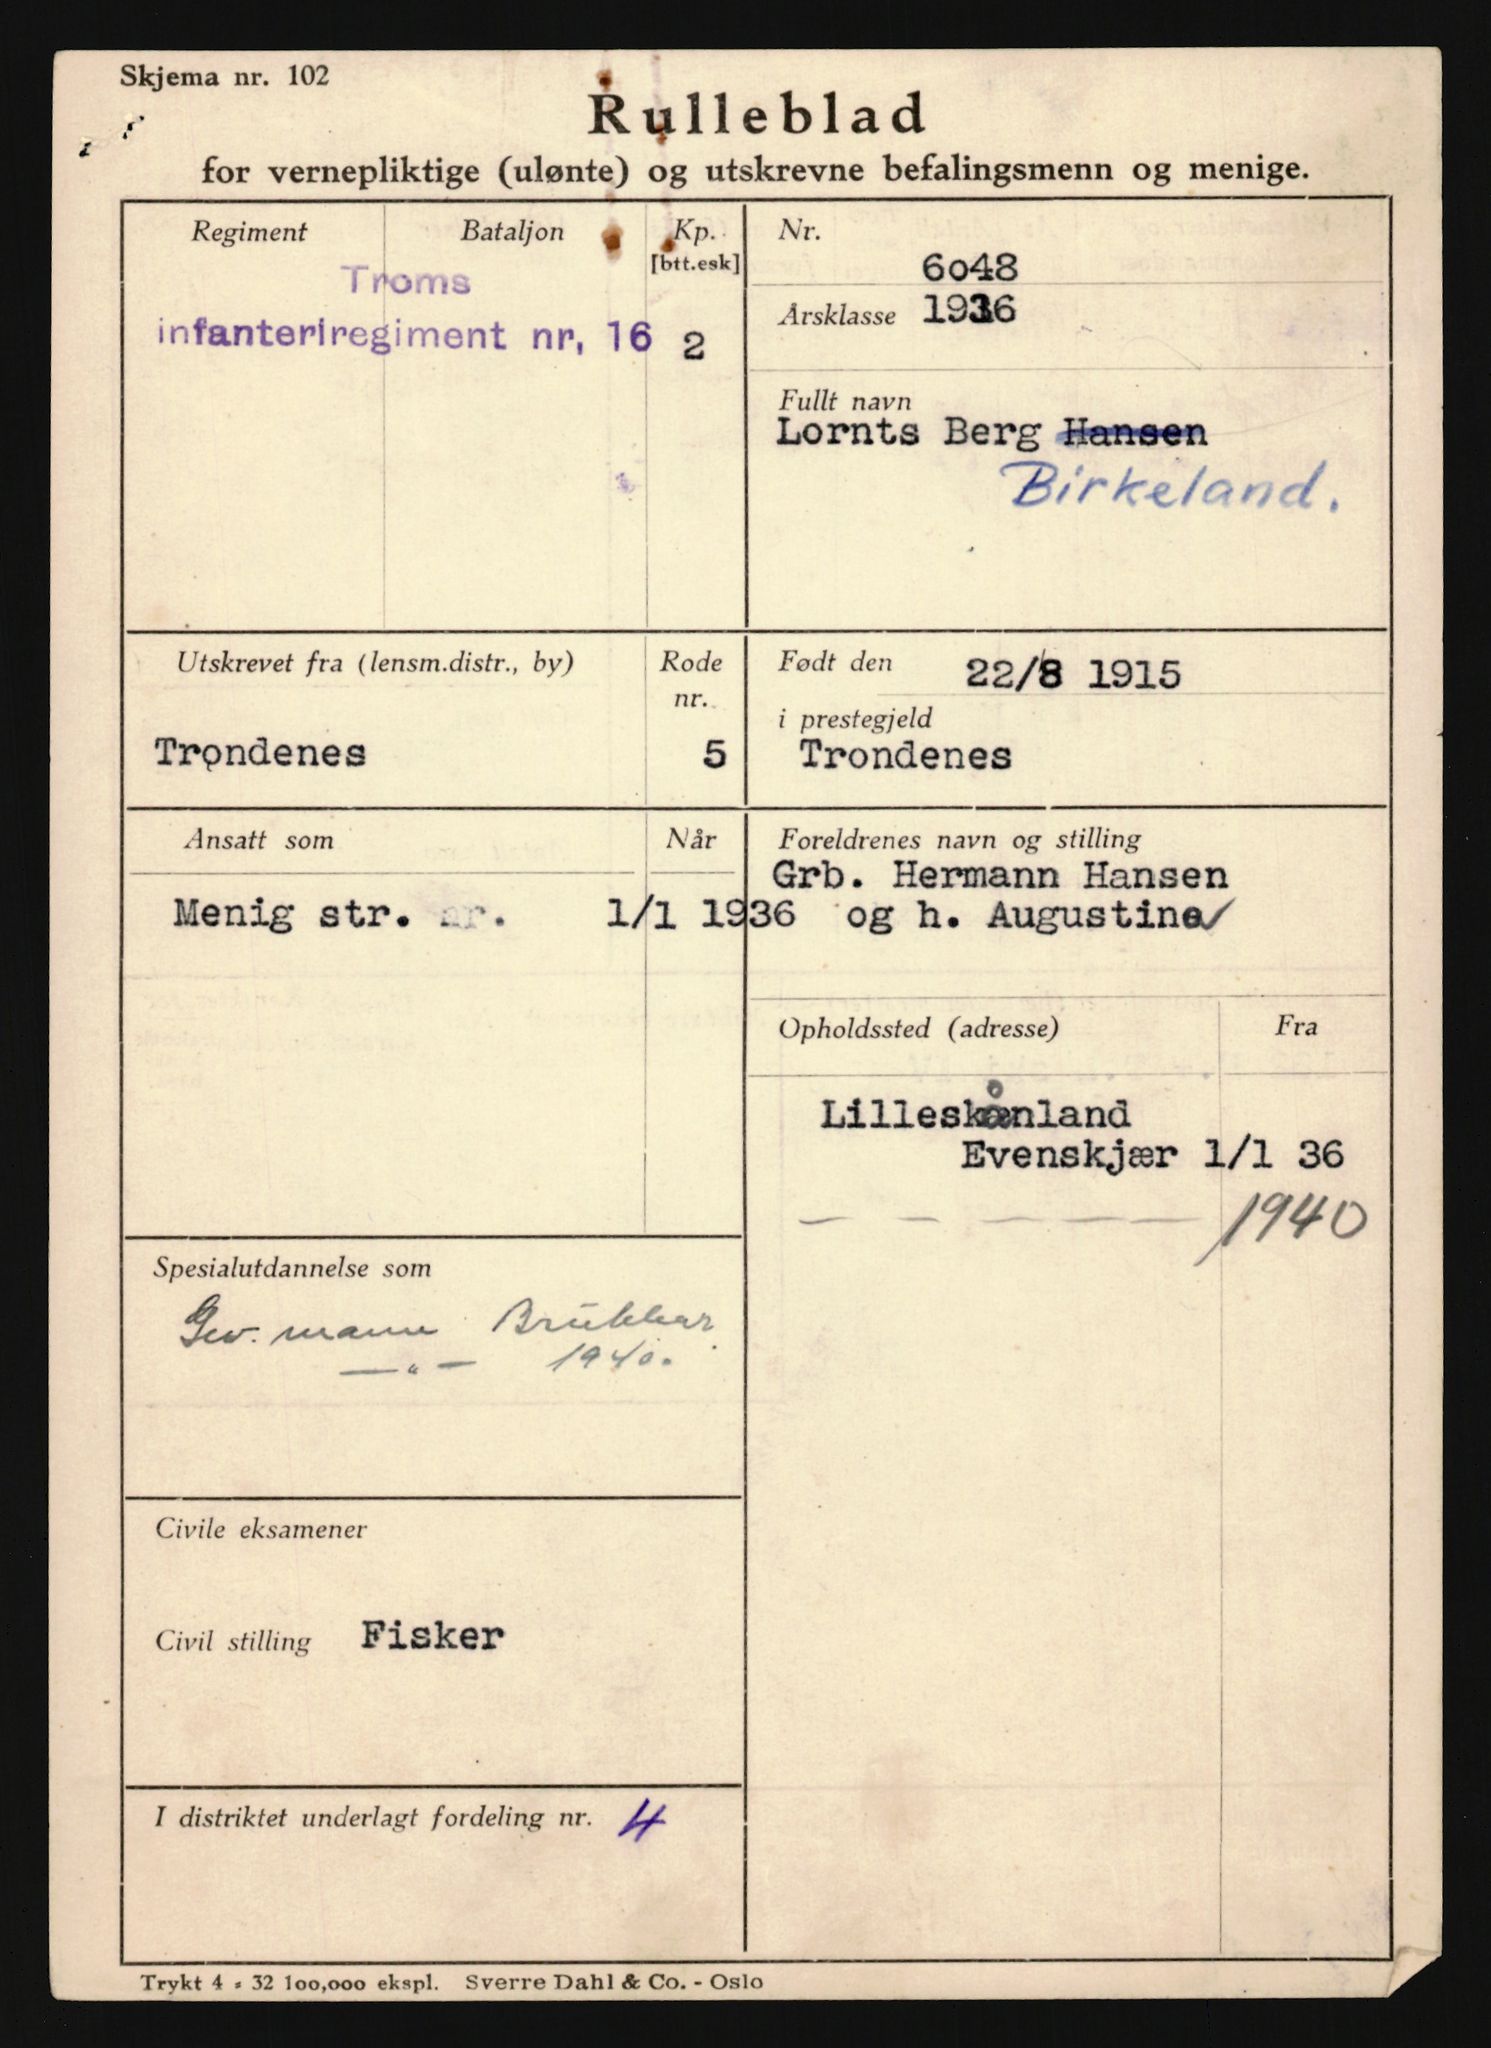 Skjema nr. 102
Rulleblad
for vernepliktige (ulønte) og utskrevne befalingsmenn og menige.
Regiment Bataljon Kp.
[btt.esk]
Troms
infanteriregiment nr, 16 2
Nr.
6048
Årsklasse 1936
Fullt navn
Lornts Berg Hansen
Birkeland.
Utskrevet fra (lensm.distr., by) Rode
nr.
Trondenes 5
Født den 22/8 1915
i prestegjeld
Trondenes
Ansatt som Når
Menig str. nr. 1/1 1936
Foreldrenes navn og stilling
Grb. Hermann Hansen
og h. Augustine
Opholdssted (adresse) Fra
Lilleskånland
Evenskjær 1/1 36
— — — — — 1940
Spesialutdannelse som
Gev. mann Brukbar
—„— 1940.
Civile eksamener
Civil stilling Fisker
I distriktet underlagt fordeling nr. 4
Trykt 4 - 32 100,000 ekspl. Sverre Dahl & Co. - Oslo